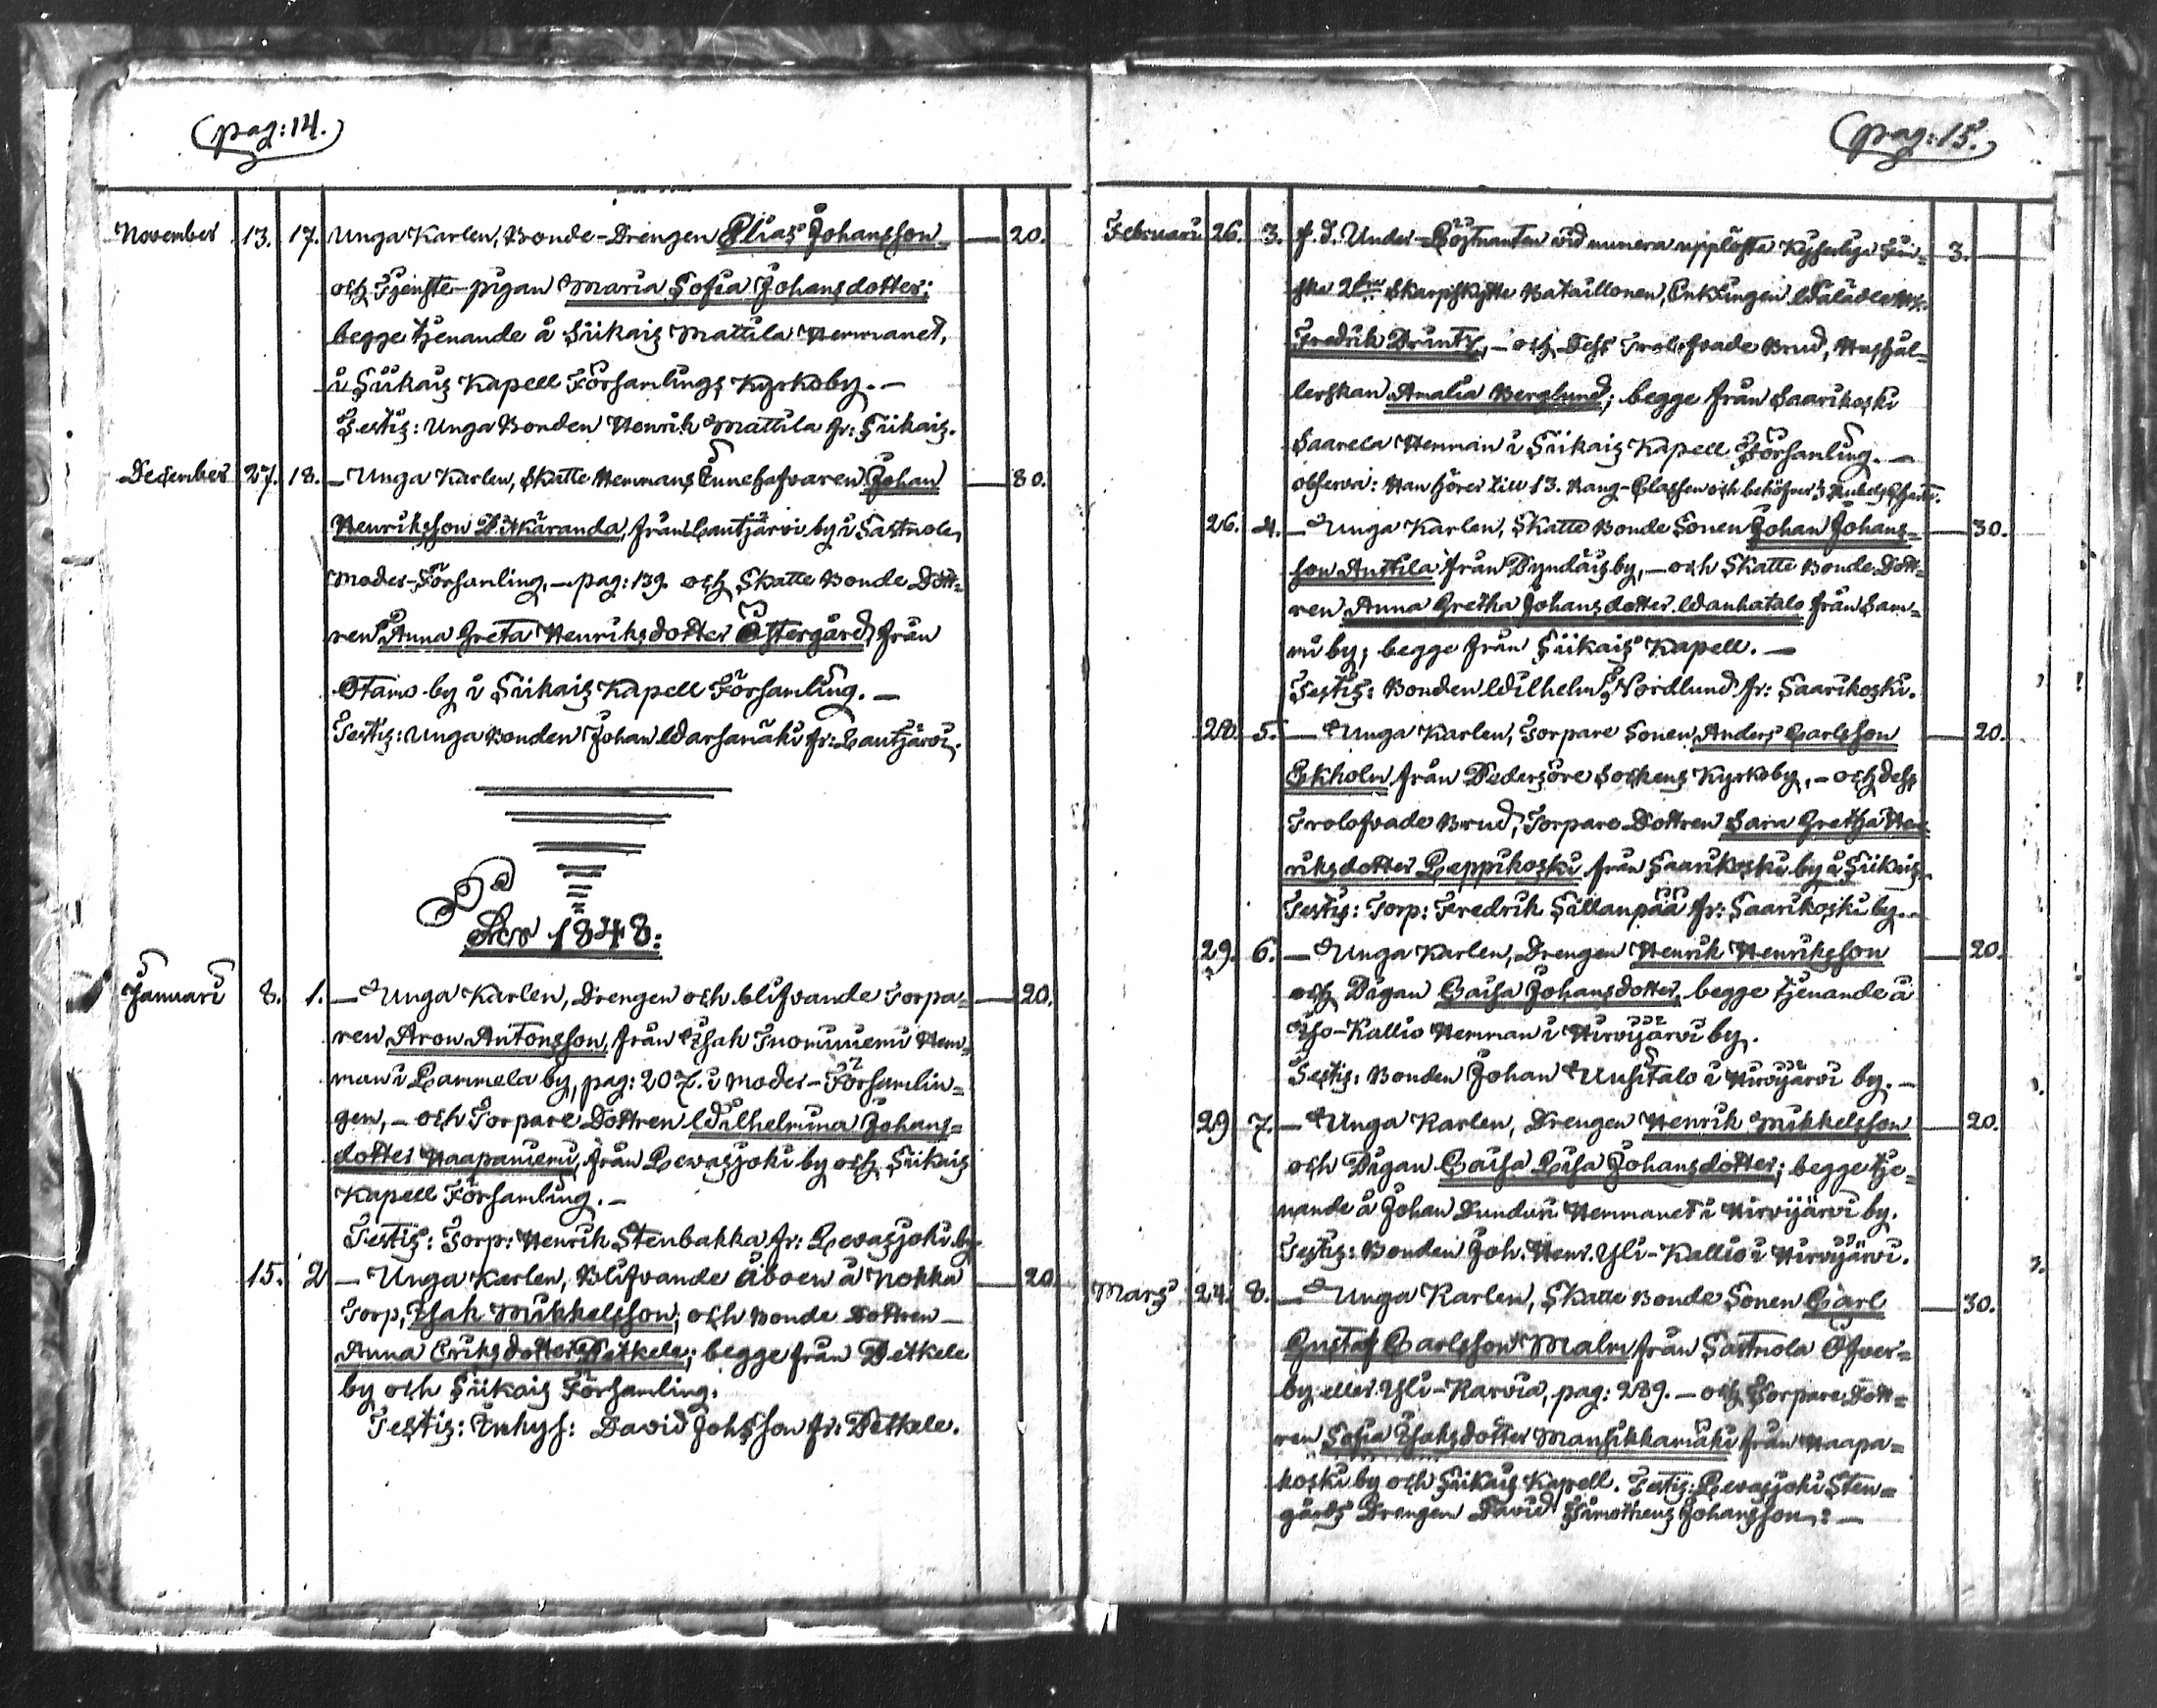 (pag: 14.)
November 13. 17. Unga Karlen, Bonde-Drengen Elias Johansson — 20.
och Tjenste-pigan Maria Sofia Johansdotter;
begge tjenande å Siikais Mattila Hemmanet,
i Siikais Kapell Församlings Kyrkoby. —
Testis: Unga Bonden Henrik Mattila fr: Siikais.
December 27. 18. — Unga Karlen, Skatte Hemmans Innehafvaren Johan — 80.
Henriksson Pitkäranda, från Lautjärvi by i Sastmola
Moder-Församling, — pag: 139. och Skatte Bonde Dott=
ren Anna Greta Henriksdotter Östergård, från
Otamo by i Siikais Kapell Församling. —
Testis: Unga Bonden Johan fr: Lautjärvi.
År 1848:
Januari 8. 1. — Unga Karlen, Drengen och blifvande Torpa= — 20.
ren Aron Antonsson, från Isak Hem=
man i Lammela by, pag: 207. i Moder-Församlin=
gen, — och Torpare Dottren Wilhelmina Johans=
dotter Haapaniemi, från Lewasjoki by och Siikais
Kapell Församling. —
Testis: Torp: Henrik Stenbakka fr: Lewasjoki by
15. 2 — Unga Karlen, Blifvande Åboen å Nokka — 20.
Torp, Isak Mikkelsson; och Bonde Dottren —
Anna Eriksdotter Petkele; begge från Petkele
by och Siikais Församling.
Testis: Inhys: David Johsson fr: Petkele.
(pag: 15.)
Februari 26. 3. f. d. Under-Löjtnanten vid numera upplösta Kejserliga Fin= 3. —
ska 2dra Skarpskytte Bataillonen, Enklingen
Fredrik Printz, — och Dess Trolofvade Brud, Hushål=
lerskan Amalia Berglund; begge från Saarikoski
Saarela Hemman i Siikais Kapell Församling. —
observ: Han hörer till 13. Rang-Classen och behöfver
26. 4. — Unga Karlen, Skatte Bonde Sonen Johan Johans= — 30.
son Anttila från by, — och Skatte Bonde Dott=
ren Anna Gretha Johansdotter Wanhatalo från Sam=
mi by; begge från Siikais Kapell. —
Testis: Bonden Wilhelm Nordlund fr: Saarikoski.
5. — Unga Karlen, Torpare Sonen Anders Carlsson — 20.
Ekholm från Pedersöre Sockens Kyrkoby, — och dess
Trolofvade Brud, Torpare Dottren Sara Gretha Hen=
riksdotter Leppikoski från Saarikoski by i Siikais.
Testis: Torp: Fredrik Sillanpää fr: Saarikoski by. —
29. 6. — Unga Karlen, Drengen Henrik Henriksson — 20.
och Pigan Caisa Johansdotter, begge tjenande å
Iso-Kallio Hemman i Hirvijärvi by.
Testis: Bonden Johan Uusitalo i Hirvijärvi by. —
29 7. — Unga Karlen, Drengen Henrik Mikkelsson — 20.
och Pigan Caisa Lisa Johansdotter; begge tje=
nande å Johan Hemmanet i Hirvijärvi by.
Testis: Bonden Joh. Henr. Yli-Kallio i Hirvijärvi.
Mars 24. 8. — Unga Karlen, Skatte Bonde Sonen Carl — 30.
Gustaf Carlsson Malm från Sastmola Öfver=
by eller Yli-Karvia, pag: 289. — och Torpare Dott=
ren Sofia Isaksdotter Mansikkamäki från Haapa=
koski by och Siikais Kapell. Testis: Lewasjoki Sten=
gårds Drengen David Timotheus Johansson: —